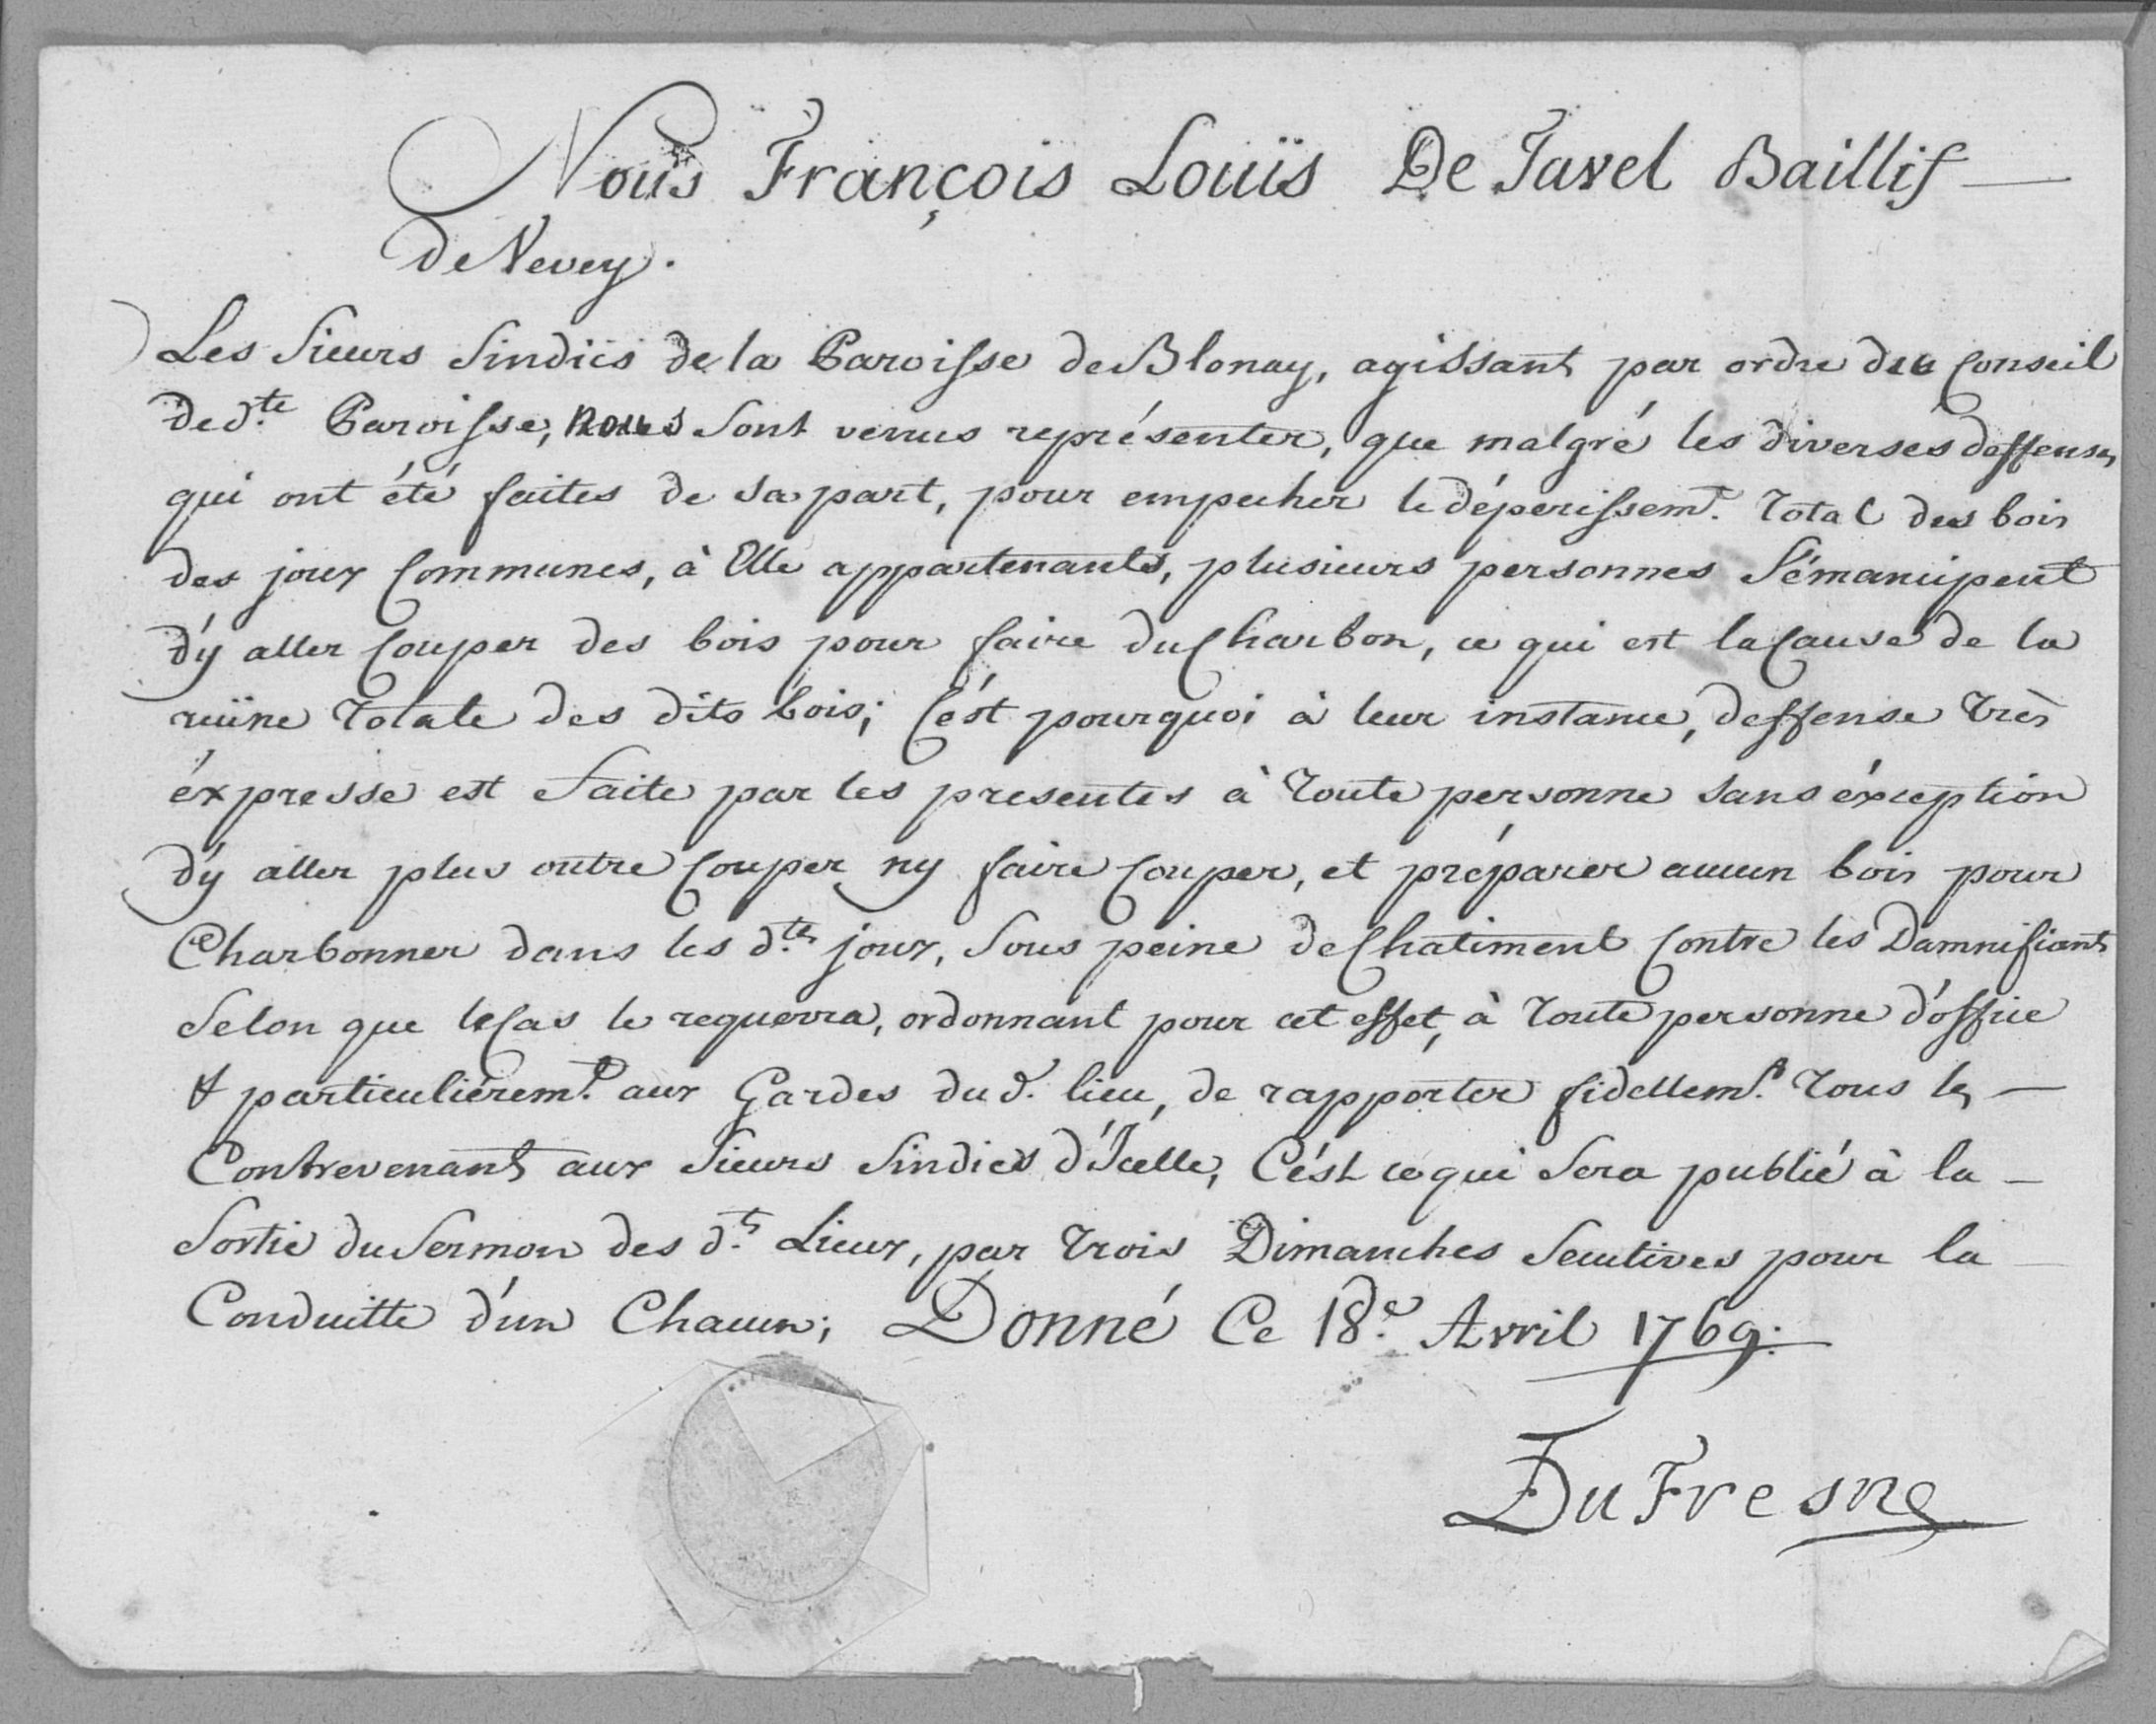 Nous François Louïs De Tavel Baillif
de Vevey.
Les Sieurs Sindics de la Paroisse de Blonay, agissant par ordre du Conseil
de d.te Paroisse, nous sont venus représenter, que malgré les diverses deffenses
qui ont été faites de sa part, pour empecher le déperissem.t Total des bois
des joux Communes, à Elle appartenants, plusieurs personnes S'émancipent
d'y aller Couper des bois pour faire du Charbon, ce qui est la Cause de la
ruïne Totale des dits bois; C'ést pourquoi à leur instance, deffense Très
éxpresse est faite par les presentes à Toute personne sans éxception
d'y aller plus outre Couper ny faire Couper, et préparer aucun bois pour
Charbonner dans les d.tes joux, Sous peine de Chatiment Contre les Damnifiants
Selon que le Cas le requerra, ordonnant pour cet effet, à Toute personne d'office
& particuliérem.t aux Gardes du d. lieu, de rapporter fidellem.t Tous les
Contrevenants aux Sieurs Sindics d'Icelle, C'ést ce qui Sera publié à la
Sortie du Sermon des d.ts Lieux, par Trois Dimanches Secutives pour la
Conduitte d'un Chacun; Donné Ce 18.e Avril 1769.
DuFresne